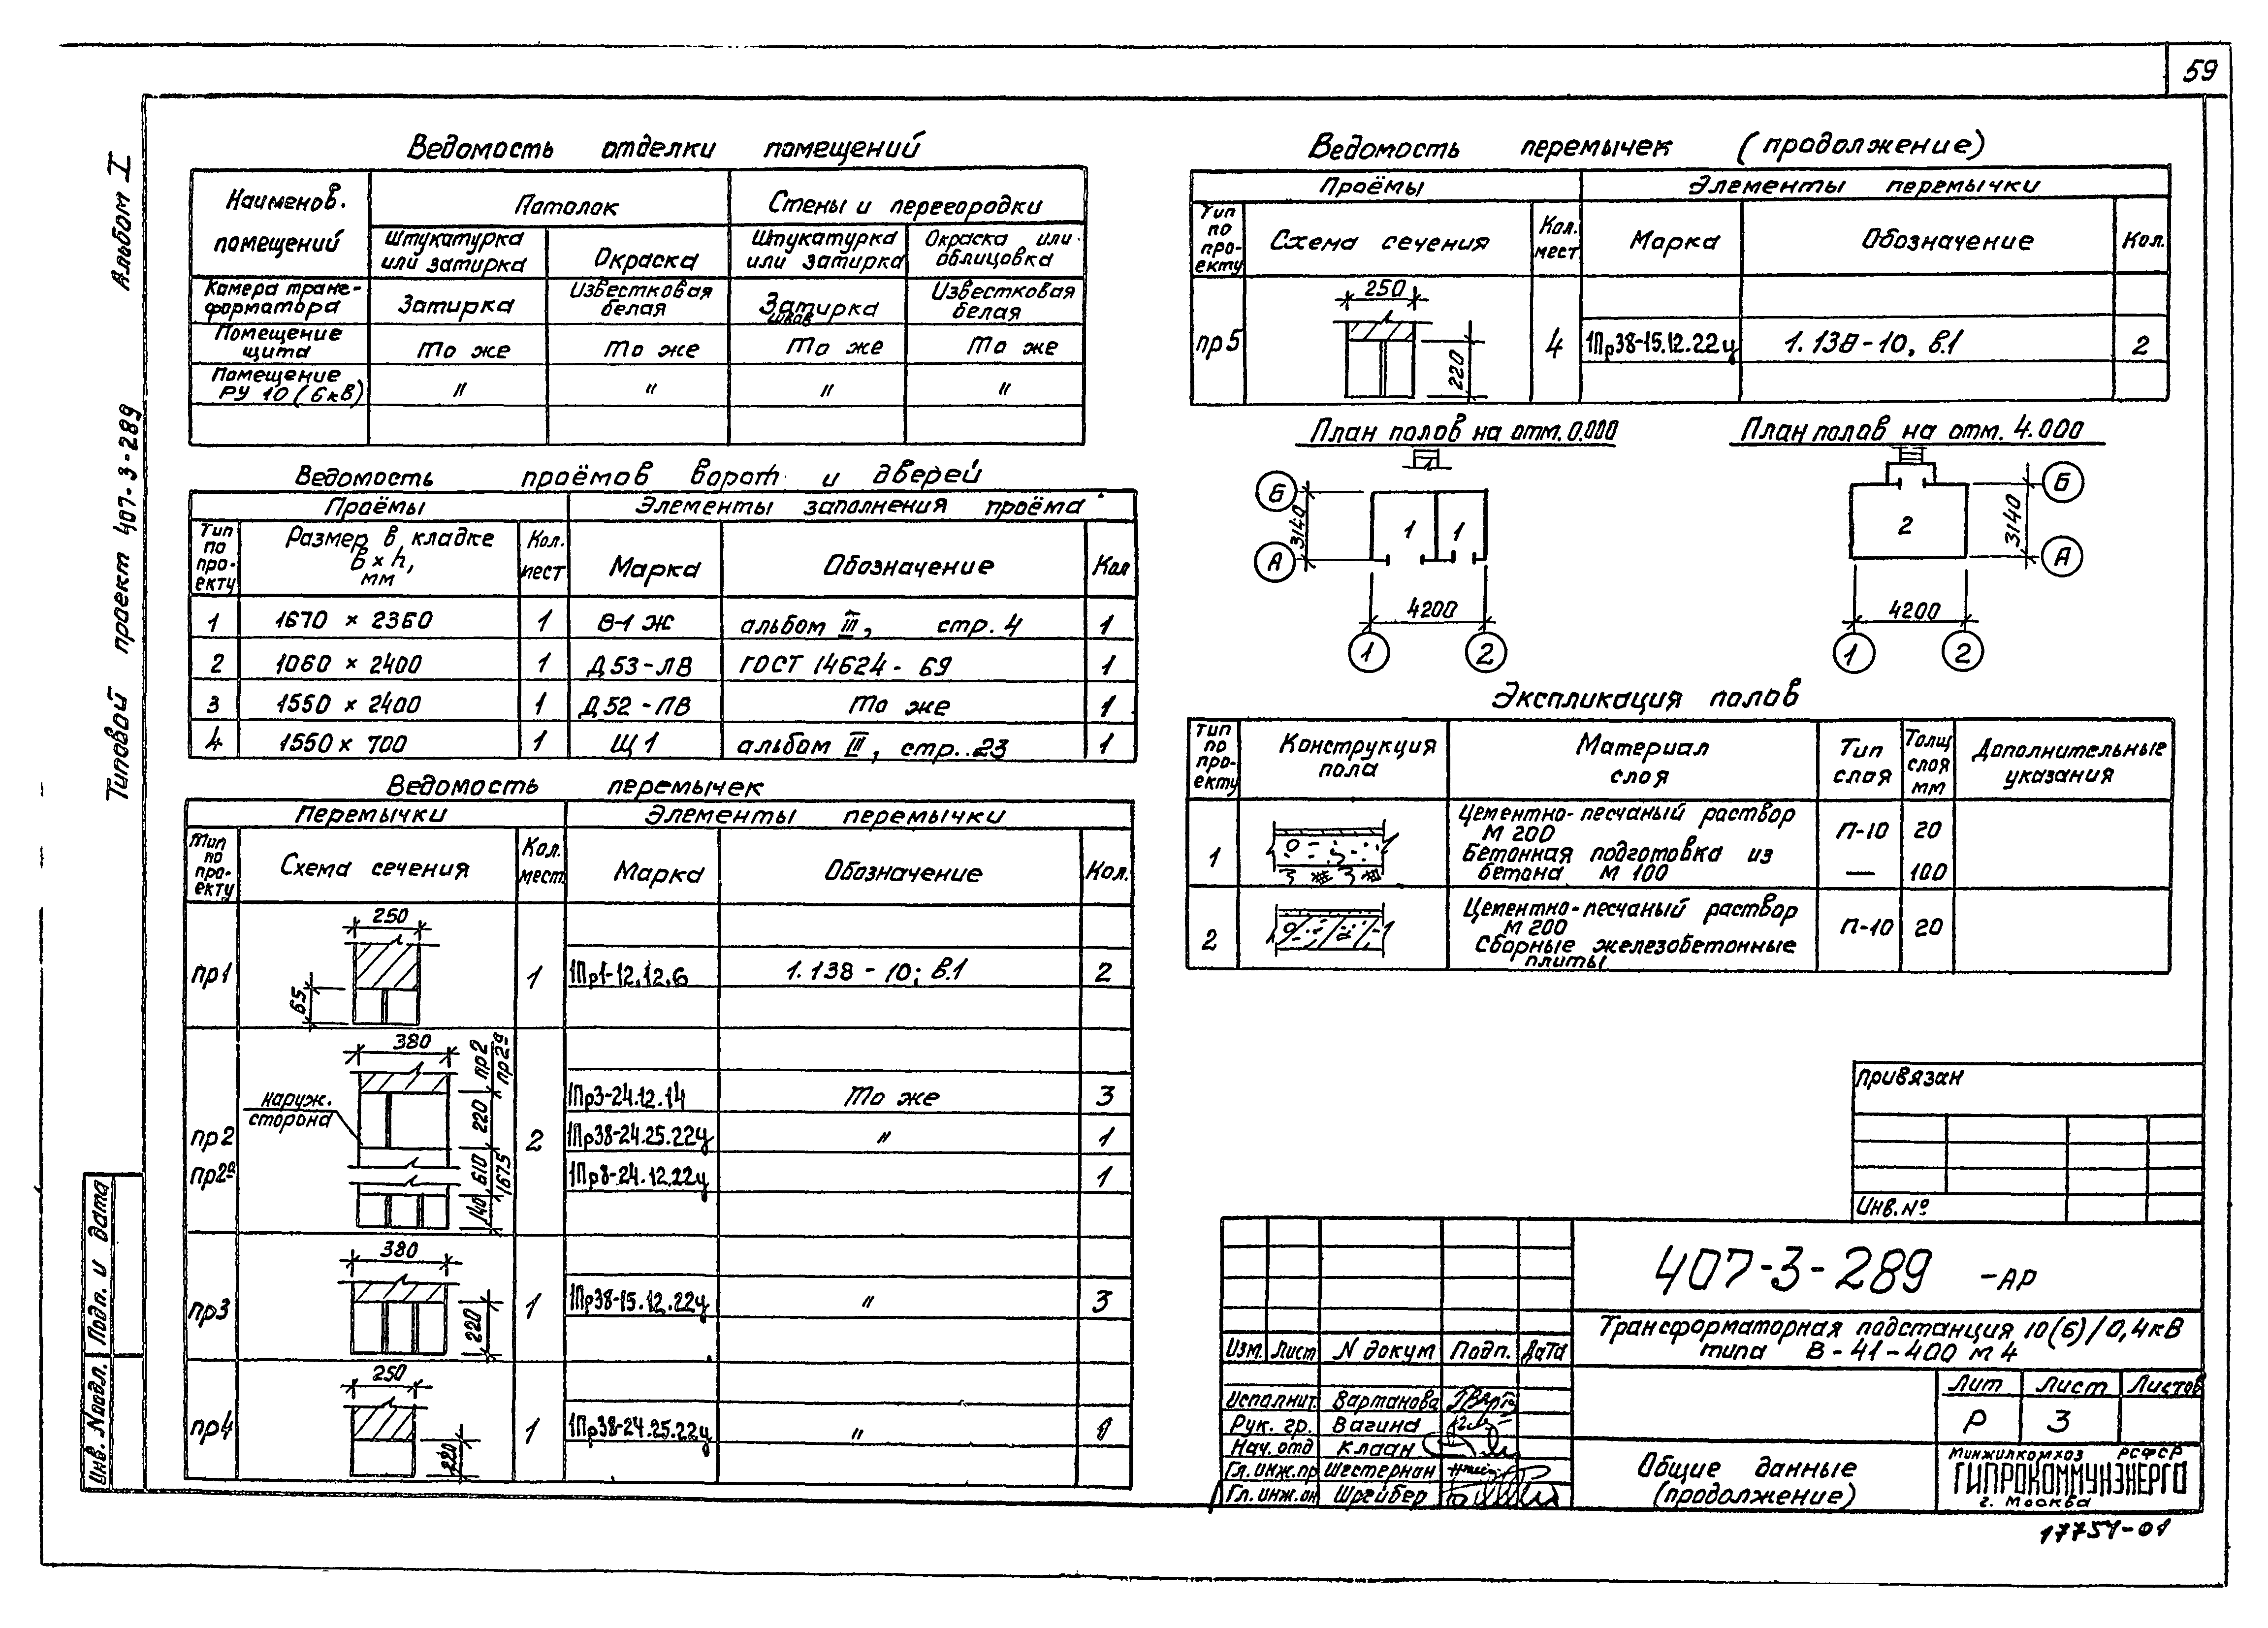 59
Альбом I
Типовой проект 407-3-289
Ведомость отделки помещений
Наименов. помещений
Потолок
Стены и перегородки
Штукатурка или затирка
Окраска
Штукатурка или затирка
Окраска или облицовка
Камера трансформатора
Затирка
Известковая белая
Затирка швов
Известковая белая
Помещение щита
То же
То же
То же
То же
Помещение РУ 10 (6кВ)
"
"
"
"
Ведомость проёмов ворот и дверей
Проёмы
Элементы заполнения проёма
Тип по проекту
Размер в кладке в × h, мм
Кол. мест
Марка
Обозначение
Кол
1 1670 × 2360 1 В-1 Ж альбом III, стр. 4 1
2 1060 × 2400 1 Д53-ЛВ ГОСТ 14624-69 1
3 1550 × 2400 1 Д52-ПВ То же 1
4 1550 × 700 1 Щ1 альбом III, стр. 23 1
Ведомость перемычек
Перемычки
Элементы перемычки
Тип по проекту
Схема сечения
Кол. мест.
Марка
Обозначение
Кол.
250
65
пр1 1 1Пр1-12.12.6 1.138-10; в.1 2
380
пр2
пр2а
наруж. сторона
220
220
610
1675
140
пр2
пр2а
2
1Пр3-24.12.14 То же 3
1Пр38-24.25.22у " 1
1Пр8-24.12.22у 1
380
220
пр3 1 1Пр38-15.12.22у " 3
250
220
пр4 1 1Пр38-24.25.22у " 1
Ведомость перемычек (продолжение)
Проёмы
Элементы перемычки
Тип по проекту
Схема сечения
Кол. мест
Марка
Обозначение
Кол.
250
220
пр5 4 1Пр38-15.12.22у 1.138-10, в.1 2
План полов на отм. 0.000
Б
А
3140
1
1
4200
1
2
План полов на отм. 4.000
Б
А
3140
2
4200
1
2
Экспликация полов
Тип по проекту
Конструкция пола
Материал слоя
Тип слоя
Толщ слоя мм
Дополнительные указания
1
Цементно-песчаный раствор М 200
П-10
20
Бетонная подготовка из бетона М 100
—
100
2
Цементно-песчаный раствор М 200
П-10
20
Сборные железобетонные плиты
Привязан
Инв. №
407-3-289 -АР
Трансформаторная подстанция 10(6)/0,4кВ
типа В-41-400 м4
Изм. Лист N докум Подп. Дата
Исполнит. Вартанова
Рук. гр. Вагина
Нач. отд Клаан
Гл. инж. пр Шестернин
Гл. инж. он Шрейбер
Лит
Лист
Листов
Р
3
Общие данные
(продолжение)
Минжилкомхоз РСФСР
ГИПРОКОММУНЭНЕРГО
г. Москва
17751-01
Инв. N подл.
Подп. и дата